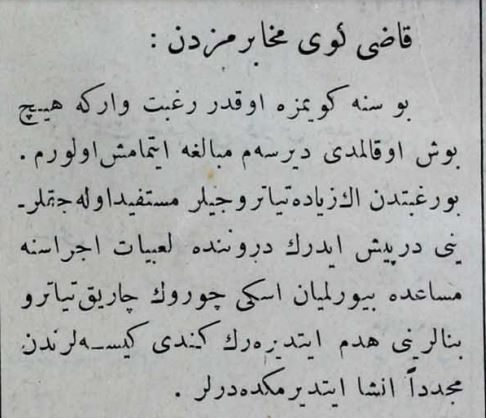 قاضی كوی مخابرمزدن :
بو سنه كویمزه اوقدر رغبت واركه هیچ
بوش اوقالمدی دیرسه‌م مبالغه ایتمامش اولورم .
بورغبتدن اك زیاده تیاتروجیلر مستفید اوله‌جقلر-
ینی درپیش ایدرك دروننده لعبیات اجراسنه
مساعده بیورلمیان اسكی چوروك چاریق تیاترو
بنالرینی هدم ایتدیره‌رك كندی كیسه‌لرندن
مجدداً انشا ایتدیرمكده‌درلر .